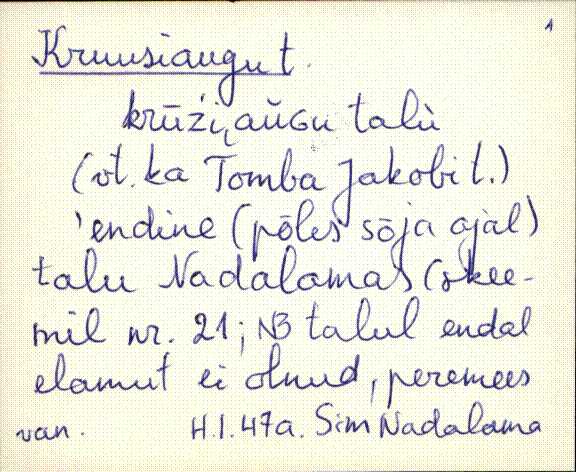 Kruusiaugu t.
krūźi̮ aŭGu talù
(vt. ka Tomba Jakobi t.)
'endine (pōles sōja ajàl)
talu Nadalamas (skee-
mil nr. 21; NB talul endal
elamut ei olnud, peremees
van. H.I. 47a. Sim Nadalama